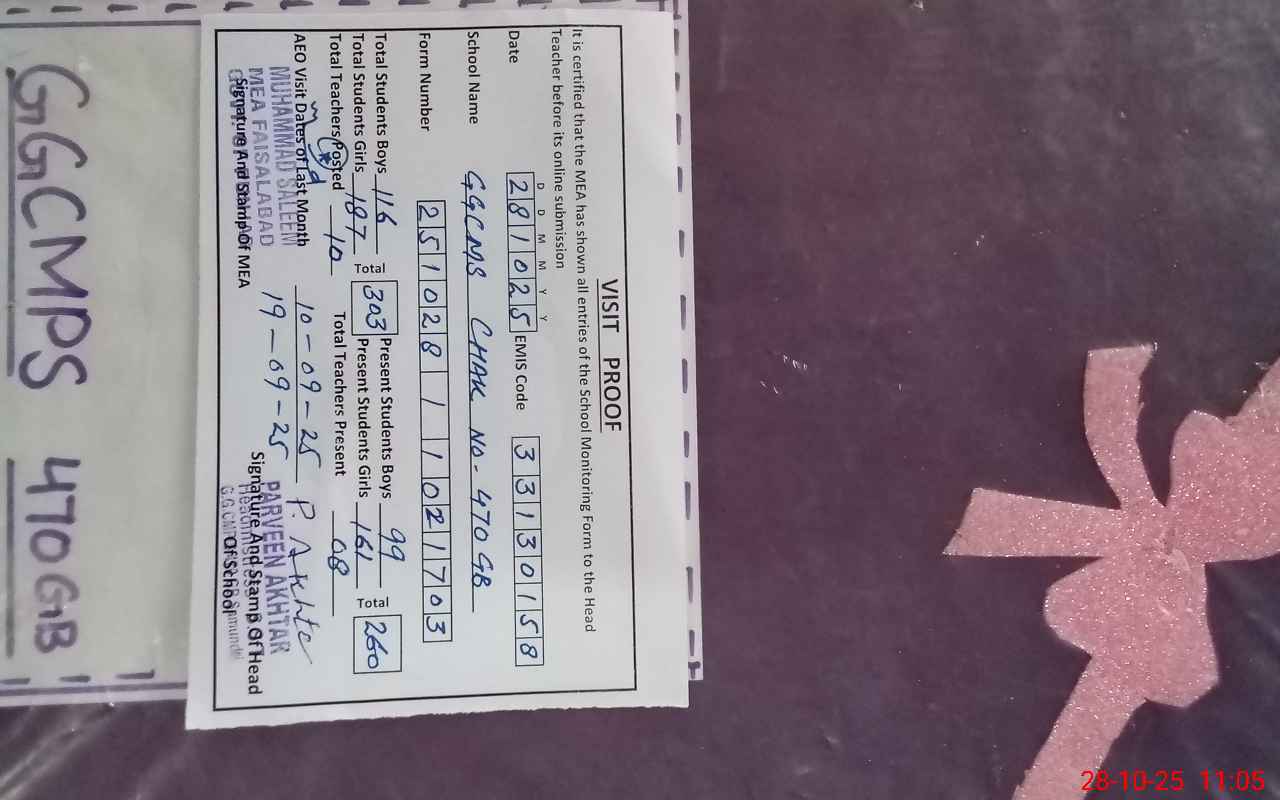 VISIT PROOF
It is certified that the MEA has shown all entries of the School Monitoring Form to the Head
Teacher before its online submission
D D M M Y Y
Date 281025 EMIS Code 33130158
School Name GGCMS CHAK NO-470 GB
Form Number 25102811021703
Total Students Boys 116 Total 303 Present Students Boys 99 Total 260
Total Students Girls 187 Present Students Girls 161
Total Teachers Posted 10 Total Teachers Present 08
AEO Visit Dates of Last Month 10-09-25 P. Akhte
19-09-25
MUHAMMAD SALEEM
MEA FAISALABAD
Signature And Stamp Of MEA
PARVEEN AKHTAR
Headmistress
Signature And Stamp Of Head
Of School
GGCMPS 470GB
28-10-25 11:05